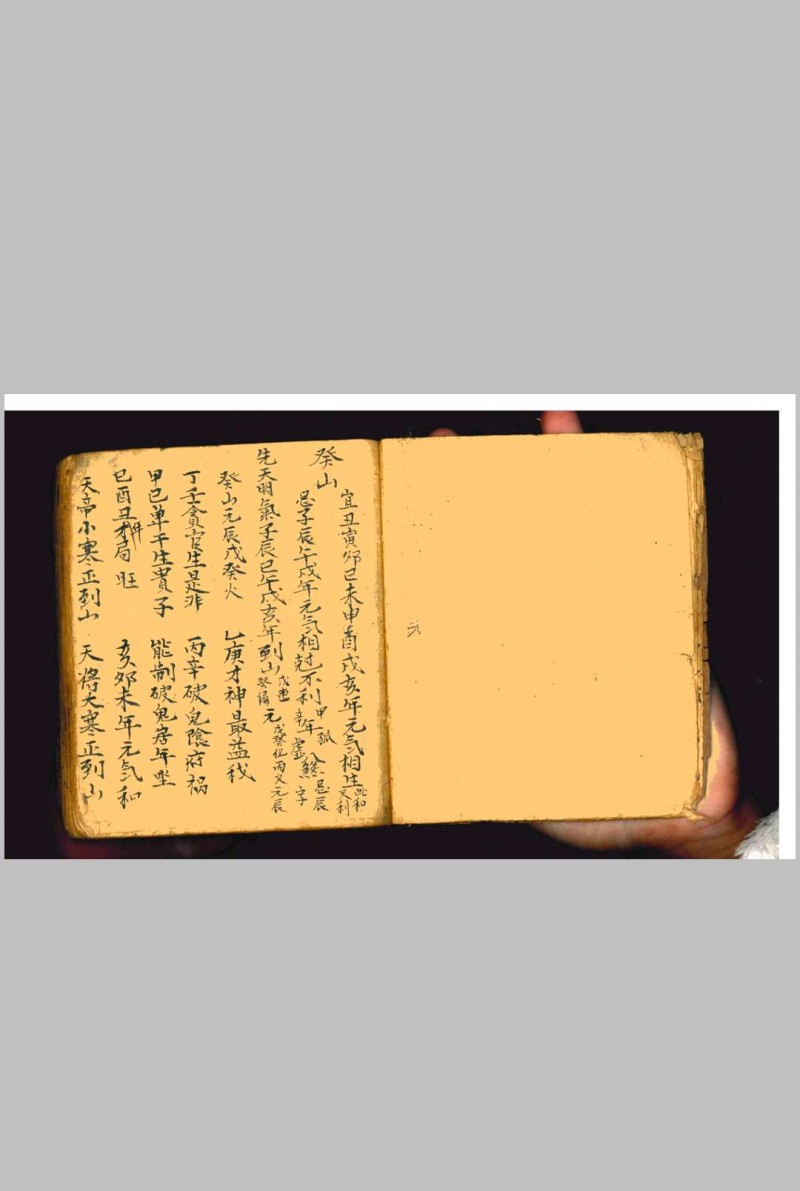 癸山
宜丑寅卯巳未申酉戌亥年元氣相生比和
又利
忌子辰午戌年元氣相尅不利甲 孤
辛年 虛
八煞忌辰
字
先天明氣子辰巳午戌亥年到山
元
戊癸化丙火元辰
癸山元辰戊癸火 乙庚才神最益我
丁壬食官生是非 丙辛破鬼陰府禍
甲巳单干生貴子 能制破鬼房年坐
巳酉丑才局 旺 亥卯未年元氣和
天帝小寒正到山 天將大寒正到山